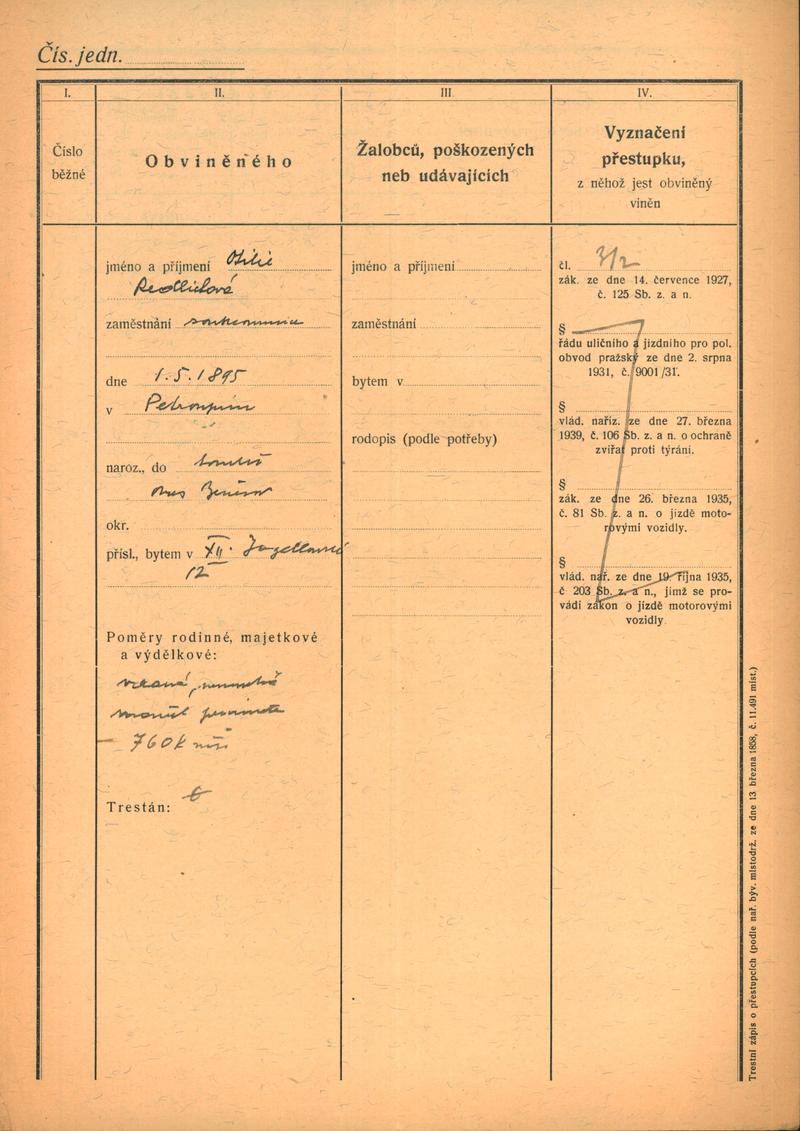 Čís. jedn.
I.
II.
III
IV.
Číslo
běžné
Obviněného
Žalobců, poškozených
neb udávajících
Vyznačení
přestupku,
z něhož jest obviněný
viněn
jméno a příjmení Otilie
Redlichová
zaměstnání soukromnice
dne 1.5.1895
v Petroupim
naroz., do
okr.
přísl., bytem v XII. Jagellonská
12
Poměry rodinné, majetkové
a výdělkové:
760 K
Trestán: 0
jméno a příjmení
zaměstnání
bytem v
rodopis (podle potřeby)
čl. 3/2
zák. ze dne 14. července 1927,
č. 125 Sb. z. a n.
§
řádu uličního a jízdního pro pol.
obvod pražský ze dne 2. srpna
1931, č. 9001/31.
§
vlád. naříz. ze dne 27. března
1939, č. 106 Sb. z. a n. o ochraně
zvířat proti týrání.
§
zák. ze dne 26. března 1935,
č. 81 Sb. z. a n. o jízdě moto-
rovými vozidly.
§
vlád. nař. ze dne 19. října 1935,
č 203 Sb. z. a n., jímž se pro-
vádí zákon o jízdě motorovými
vozidly
Trestní zápis o přestupcích (podle nař. býv. místodrž. ze dne 13. března 1858, č. 11.491 míst.)